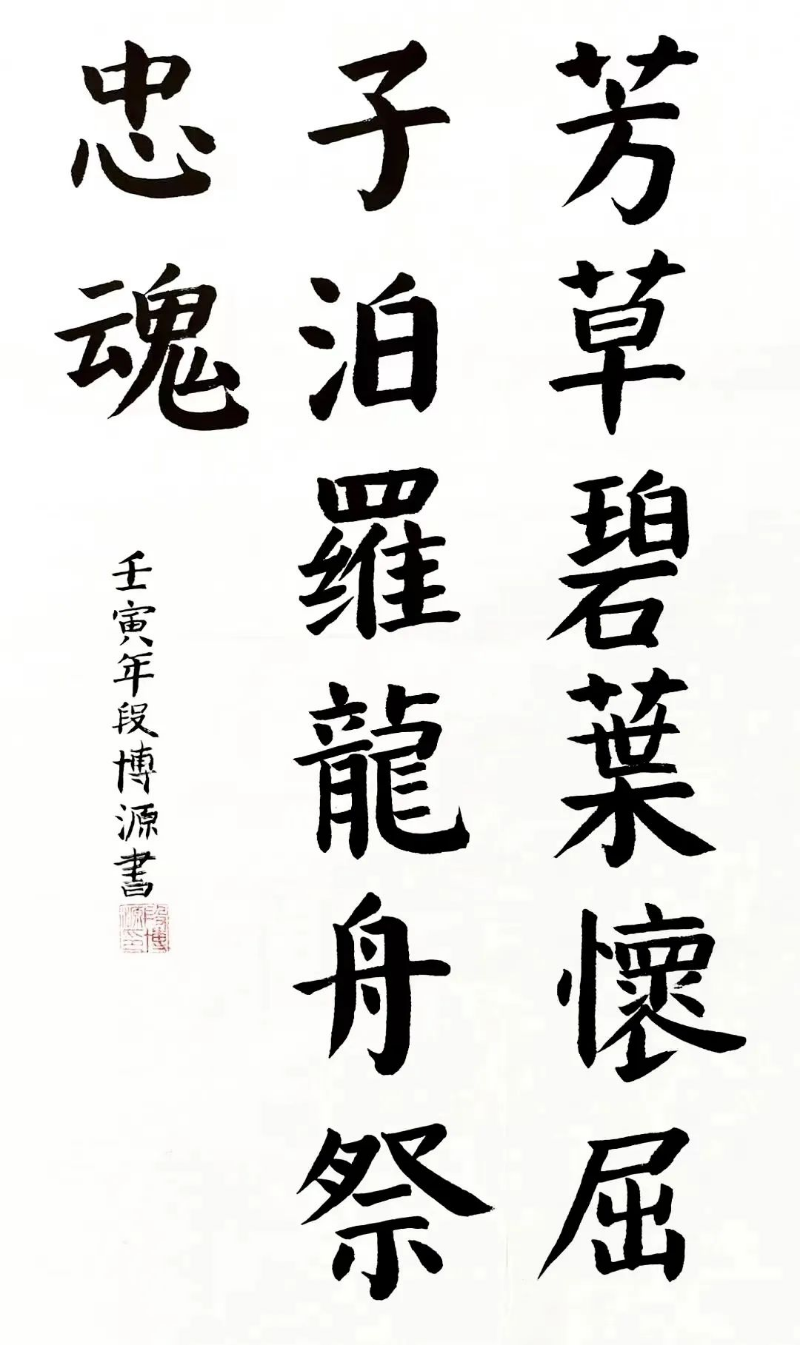 芳草碧葉懷屈
子泊羅龍舟祭
忠魂
壬寅年段博源書
段博源印